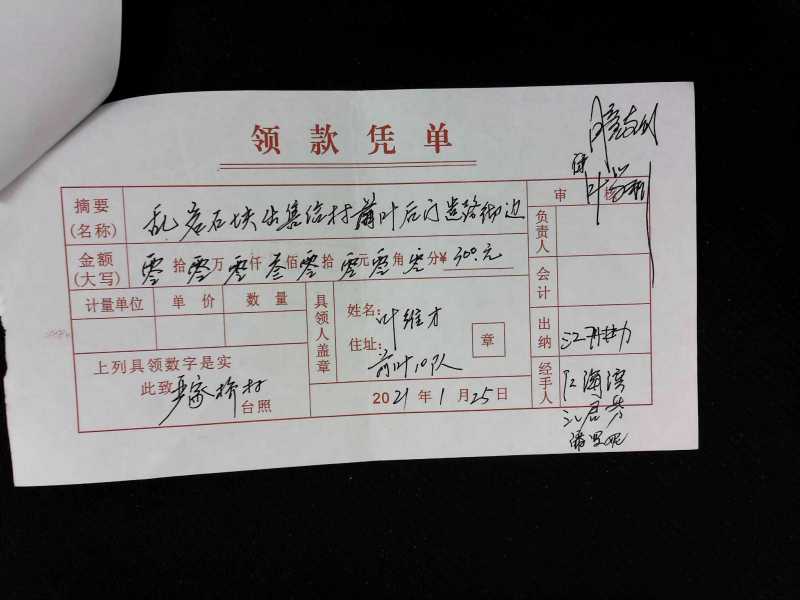 领款凭单
审核
摘要
(名称)
乱岩石块出售给村前叶后门造路衕边
金额
(大写)
零拾零万零仟叁佰零拾零元零角零分¥300.元
计量单位 单价 数量
具领人盖章
姓名: 叶维才
住址: 前叶10队
章
上列具领数字是实
此致 严家桥村 台照
2021年1月25日
负责人
会计
出纳
经手人
江海湾